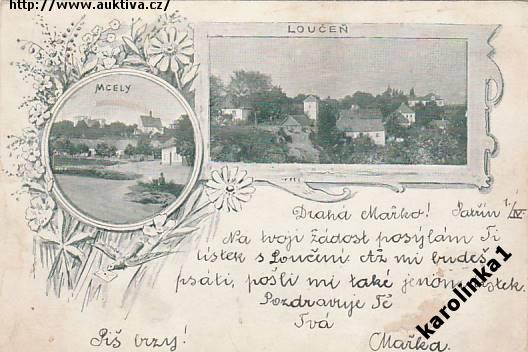 http://www.auktiva.cz/
LOUČEŇ
MCELY
Drahá Mařko! Patřín 1/IV.
Na tvoji žádost posýlám Ti
lístek s Loučíní. Až mi budeš
psáti, pošli mi také jenom lístek.
Pozdravuje Tě
Tvá
Piš brzy! Mařka.
karolinka1